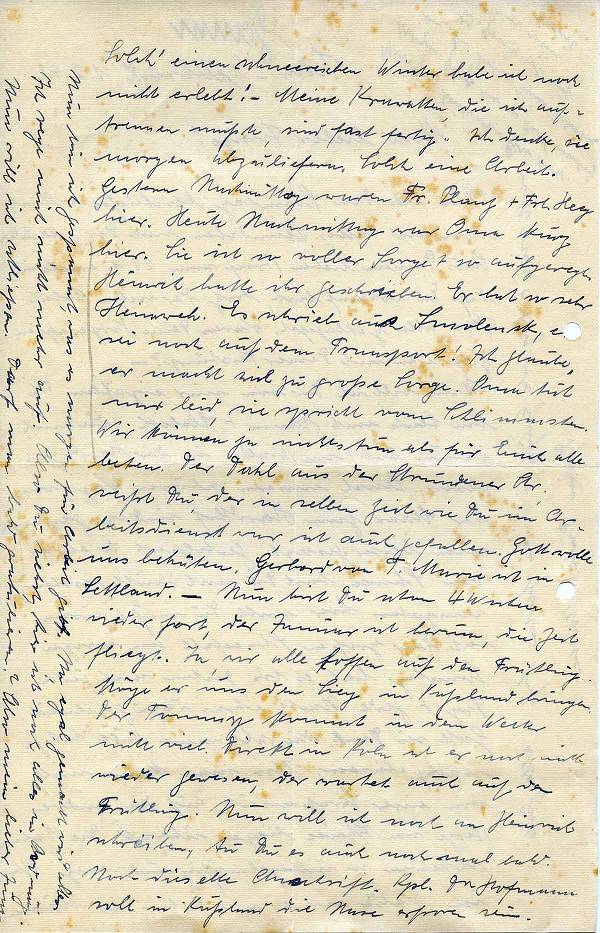 Solch' einen schneereichen Winter habe ich noch
nicht erlebt! – Meine Krawatten, die ich auf-
trennen mußte, sind fast fertig. Ich denke, sie
morgen abzuliefern. Solch eine Arbeit.
Gestern Nachmittag waren Fr. + Frl. Hey
hier. Heute Nachmittag war Oma kurz
hier. Sie ist so voller Sorge + so aufgeregt.
Heinrich hatte ihr geschrieben. Er hat so sehr
Heimweh. Es schrieb aus Smolensk, er
sei noch auf dem Transport! Ich glaube,
er macht viel zu große Sorge. Oma tut
mir leid, sie spricht vom Schlimmsten.
Wir können ja nichts tun als für Euch alle
beten. Der Dahl aus der Strundener Str.,
weißt Du, der in selben Zeit wie Du im Ar-
beitsdienst war, ist auch gefallen. Gott wolle
uns behüten. Gerhard von T. Marie ist in
Lettland. – Nun bist Du schon 4 Wochen
wieder fort, der Januar ist herum, die Zeit
fliegt. Ja, wir alle hoffen auf den Frühling.
Möge er uns den Sieg in Rußland bringen.
Der Tommy kommt in dem Wetter
nicht viel. Direkt in Köln ist er noch nicht
wieder gewesen, der wartet auch auf den
Frühling. Nun will ich noch an Heinrich
schreiben, tu Du es auch noch mal bald.
Noch dieselbe Anschrift. Kpl. Dr. Hofmann
soll in Rußland die Nase erfroren sein.
Nun bin ich gespannt, was es morgen für Arbeit gibt. Na egal, gemacht wird alles
Ich rege mich nicht mehr auf. Also Du siehst, hier ist noch alles in Ordnung.
Nun will ich schließen. Darf man bald gratulieren? Also mein lieber Junge